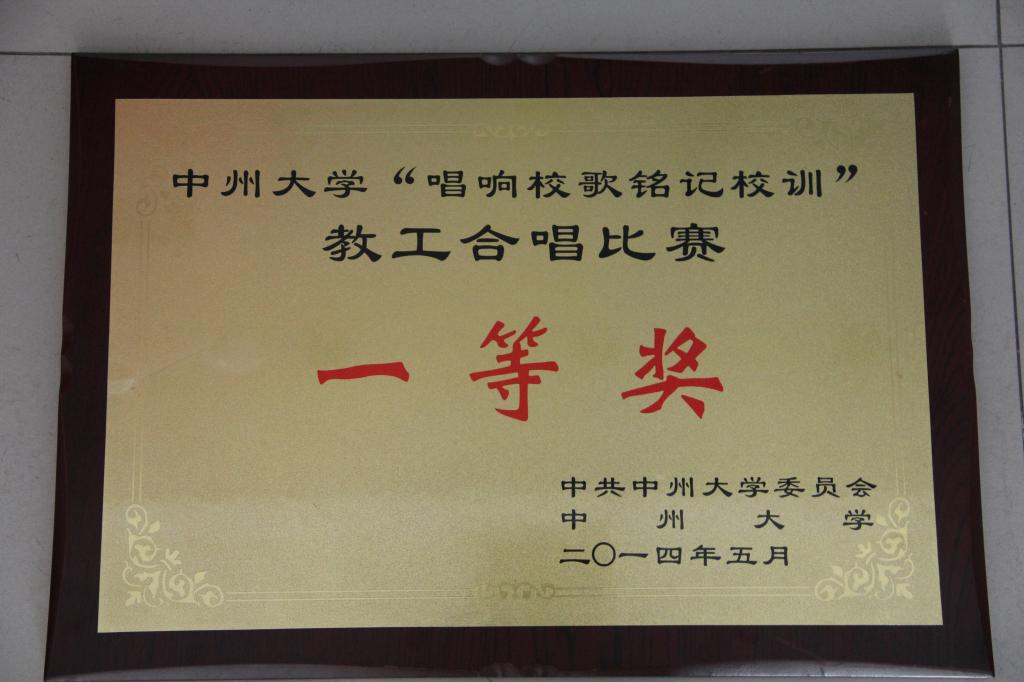 中州大学“唱响校歌铭记校训”
教工合唱比赛
一等奖
中共中州大学委员会
中州大学
二〇一四年五月